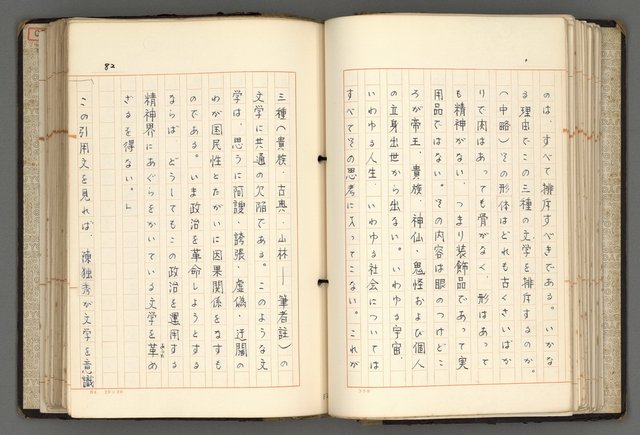 のは、すべて排斥すべきである。いかな
る理由でこの三種の文学を排斥するのか。
(中略)その形体はどれも古くさいばか
りで肉はあっても骨がなく、形はあって
も精神がない、つまり装飾品であって実
用品ではない。その内容は眼のつけどこ
ろが帝王、貴族、神仙、鬼怪および個人
の立身出世から出ない。いわゆる宇宙、
いわゆる人生、いわゆる社会については
すべてその思考に入ってこない。これが
82
三種(貴族・古典・山林——筆者註)の
文学に共通の欠陥である。このような文
学は、思うに阿諛・誇張・虚偽・迂闊の
わが国民性とたがいに因果関係をなすも
のである。いま政治を革命しようとする
ならば、どうしてもこの政治を運用する
精神界にあぐらをかいている文学を革め
ざるを得ない。」
この引用文を見れば、陳独秀が文学を意識